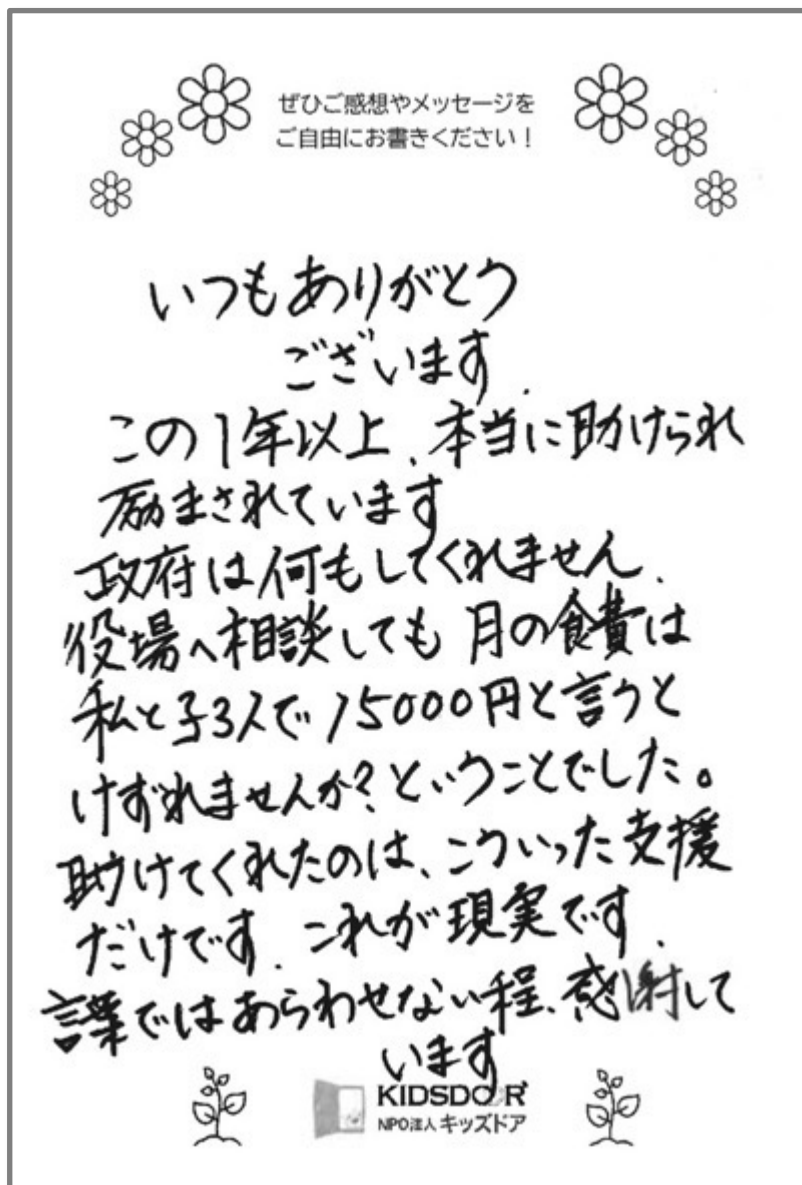 ぜひご感想やメッセージを
ご自由にお書きください!
いつもありがとう
ございます.
この1年以上、本当に助けられ
励まされています
政府は何もしてくれません、
役場へ相談しても月の食費は
私と子3人で15000円と言うと
けずれませんか?ということでした。
助けてくれたのは、こういった支援
だけです、これが現実です、
言葉ではあらわせない程、感謝して
います
KIDSDOOR
NPO法人キッズドア